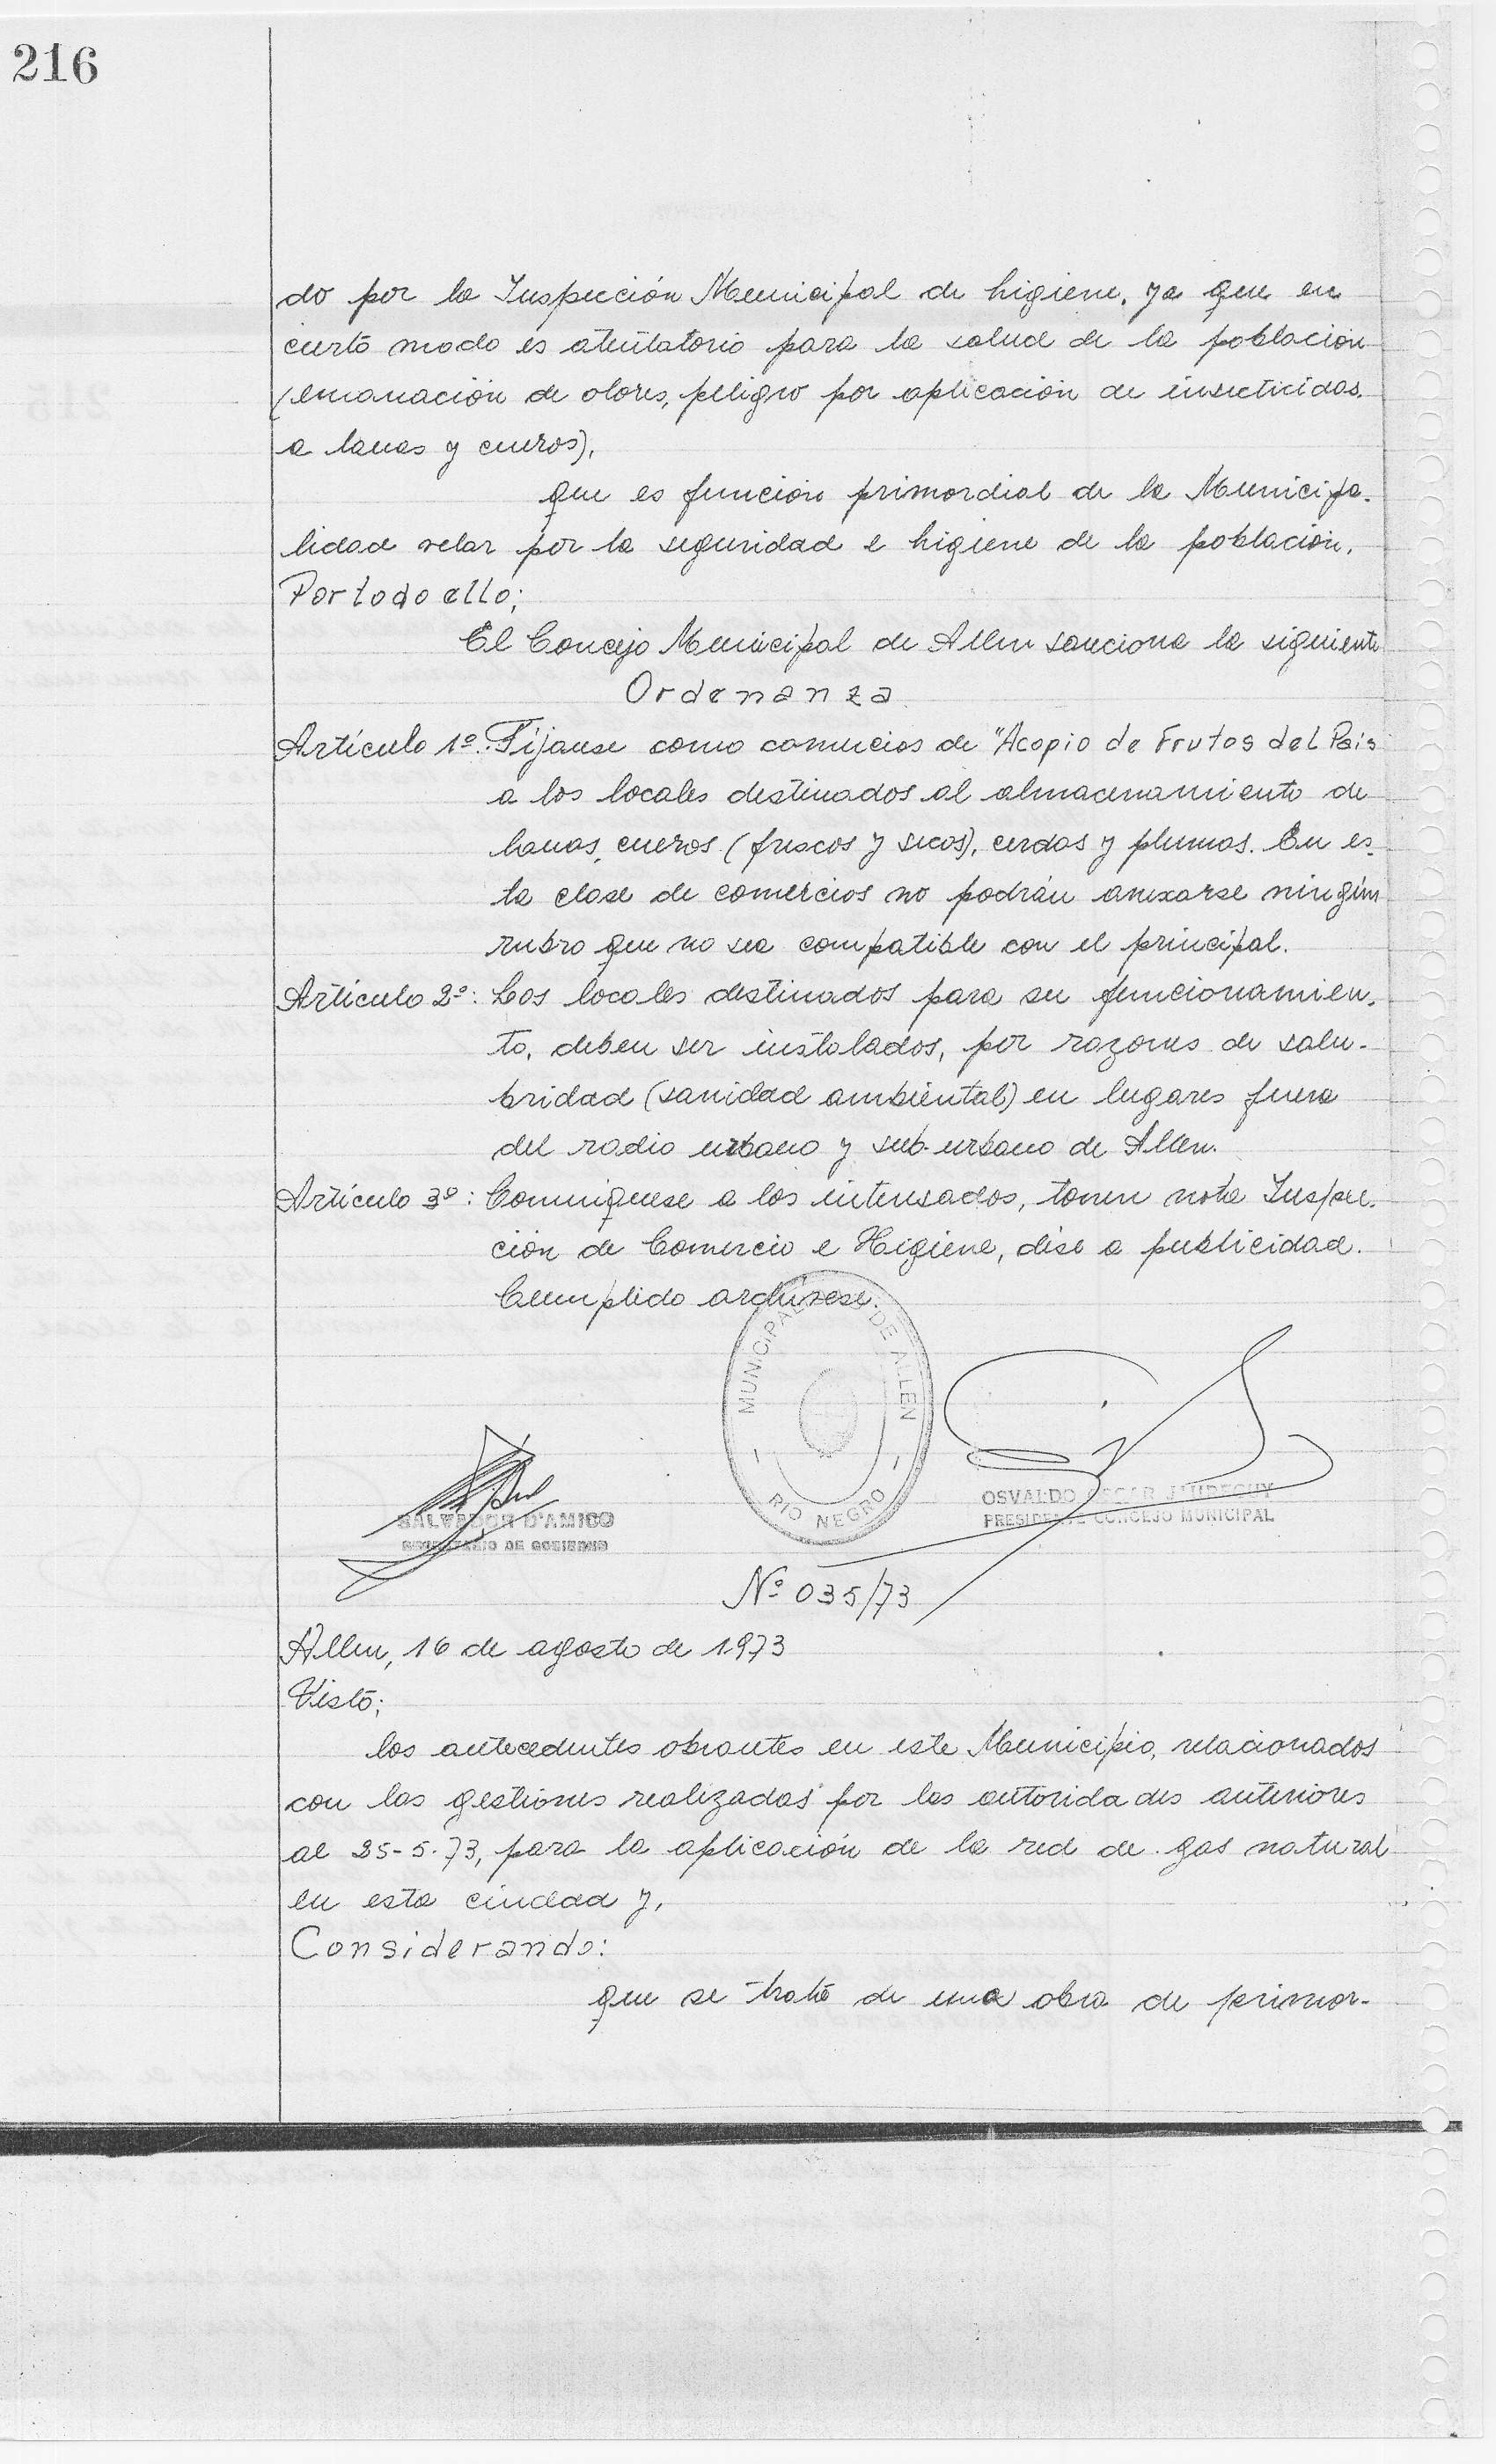 216
do por la Inspección Municipal de higiene, ya que en
cierto modo es atentatorio para la salud de la población
(emanación de olores, peligro por aplicación de insecticidas
a lanas y cueros),
que es función primordial de la Municipa-
lidad velar por la seguridad e higiene de la población,
Por todo ello;
El Concejo Municipal de Allen sanciona la siguiente
Ordenanza
Artículo 1º: Fíjanse como comercios de "Acopio de Frutos del País
a los locales destinados al almacenamiento de
lanas, cueros (frescos y secos), cerdas y plumas. En es-
ta clase de comercios no podrán anexarse ningún
rubro que no sea compatible con el principal.
Artículo 2º: Los locales destinados para su funcionamien-
to, deben ser instalados, por razones de salu-
bridad (sanidad ambiental) en lugares fuera
del radio urbano y sub-urbano de Allen.
Artículo 3º: Comuníquese a los interesados, tomen nota Inspec-
ción de Comercio e Higiene, dése a publicidad.
Cumplido archívese.
MUNICIPALIDAD DE ALLEN
RIO NEGRO
SALVADOR D'AMICO
SECRETARIO DE GOBIERNO
OSVALDO OSCAR
PRESIDENTE CONCEJO MUNICIPAL
Nº 035/73
Allen, 16 de agosto de 1973
Visto;
los antecedentes obrantes en este Municipio, relacionados
con las gestiones realizadas por las autoridades anteriores
al 25-5-73, para la aplicación de la red de gas natural
en esta ciudad y,
Considerando:
que se trata de una obra de primor-